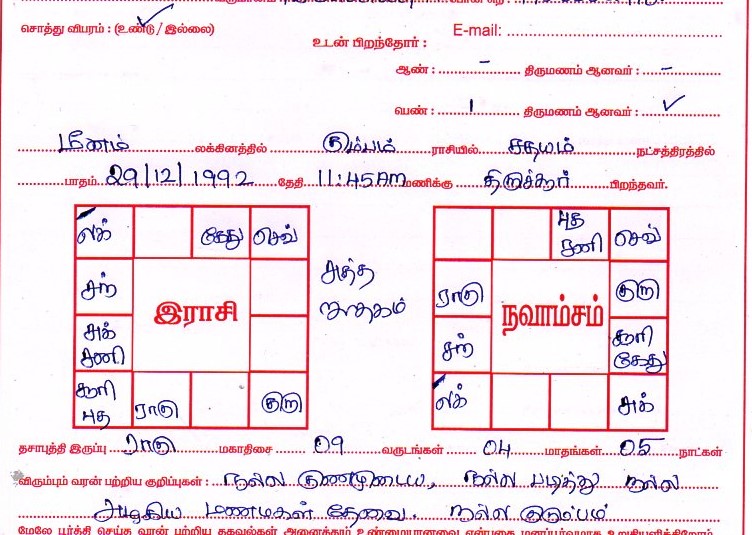 சொத்து விபரம் : (உண்டு / இல்லை)
உடன் பிறந்தோர் :
E-mail:
ஆண் : - திருமணம் ஆனவர் : -
பெண் : 1 திருமணம் ஆனவர் : ✓
மீனம் லக்கினத்தில் கும்பம் ராசியில் சதயம் நட்சத்திரத்தில்
பாதம் 29/12/1992 தேதி 11:45AM மணிக்கு திருச்சூர் பிறந்தவர்.
லக் கேது செவ்
சந்
சுக் சனி
சூரி புத ராகு குரு
இராசி
சுத்த ஜாதகம்
புத சனி செவ்
ராகு குரு
சந் சூரி கேது
லக் சுக்
நவாம்சம்
தசாபுத்தி இருப்பு ராகு மகாதிசை 09 வருடங்கள் 04 மாதங்கள் 05 நாட்கள்
விரும்பும் வரன் பற்றிய குறிப்புகள் : நல்ல குணமுடைய, நல்ல படித்து நல்ல
அழகிய மணமகள் தேவை. நல்ல குடும்பம்
மேலே பூர்த்தி செய்த வரன் பற்றிய தகவல்கள் அனைத்தும் உண்மையானவை என்பதை மனப்பூர்வமாக உறுதியளிக்கிறோம்